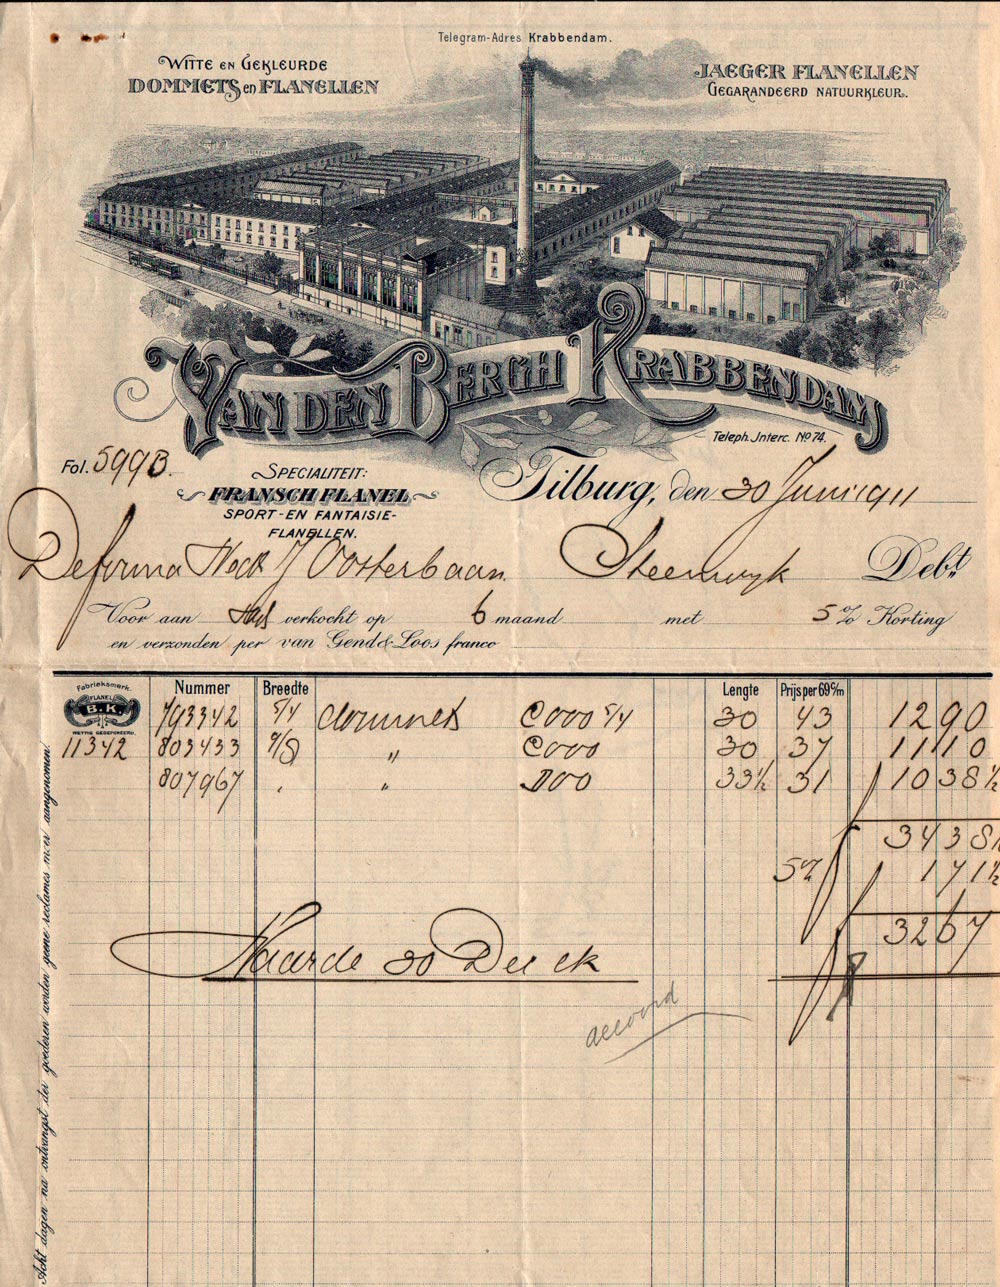 Telegram-Adres Krabbendam.
WITTE EN GEKLEURDE
DOMMETS en FLANELLEN
JAEGER FLANELLEN
GEGARANDEERD NATUURKLEUR.
VAN DEN BERGH KRABBENDAM
Teleph. Interc. No 74.
Fol. 599B.
SPECIALITEIT:
FRANSCH FLANEL
SPORT- EN FANTAISIE-
FLANELLEN.
Tilburg, den 30 Juni 1911
De firma J Oosterbaan. Steenwyk Debt.
Voor aan verkocht op 6 maand met 5 % Korting
en verzonden per van Gend & Loos franco
Fabrieksmerk. Nummer Breedte Lengte Prijs per 69 c/m
FLANEL
B.K.
WETTIG GEDEPONEERD.
793342 5/4 dommets C000 5/4 30 43 1290
11342 803433 9/8 " C000 30 37 1110
807967 " " D00 33½ 31 1038½
3438½
5% 171½
3267
Waarde 30 Dec
accoord
Acht dagen na ontvangst der goederen worden geene reclames meer aangenomen.